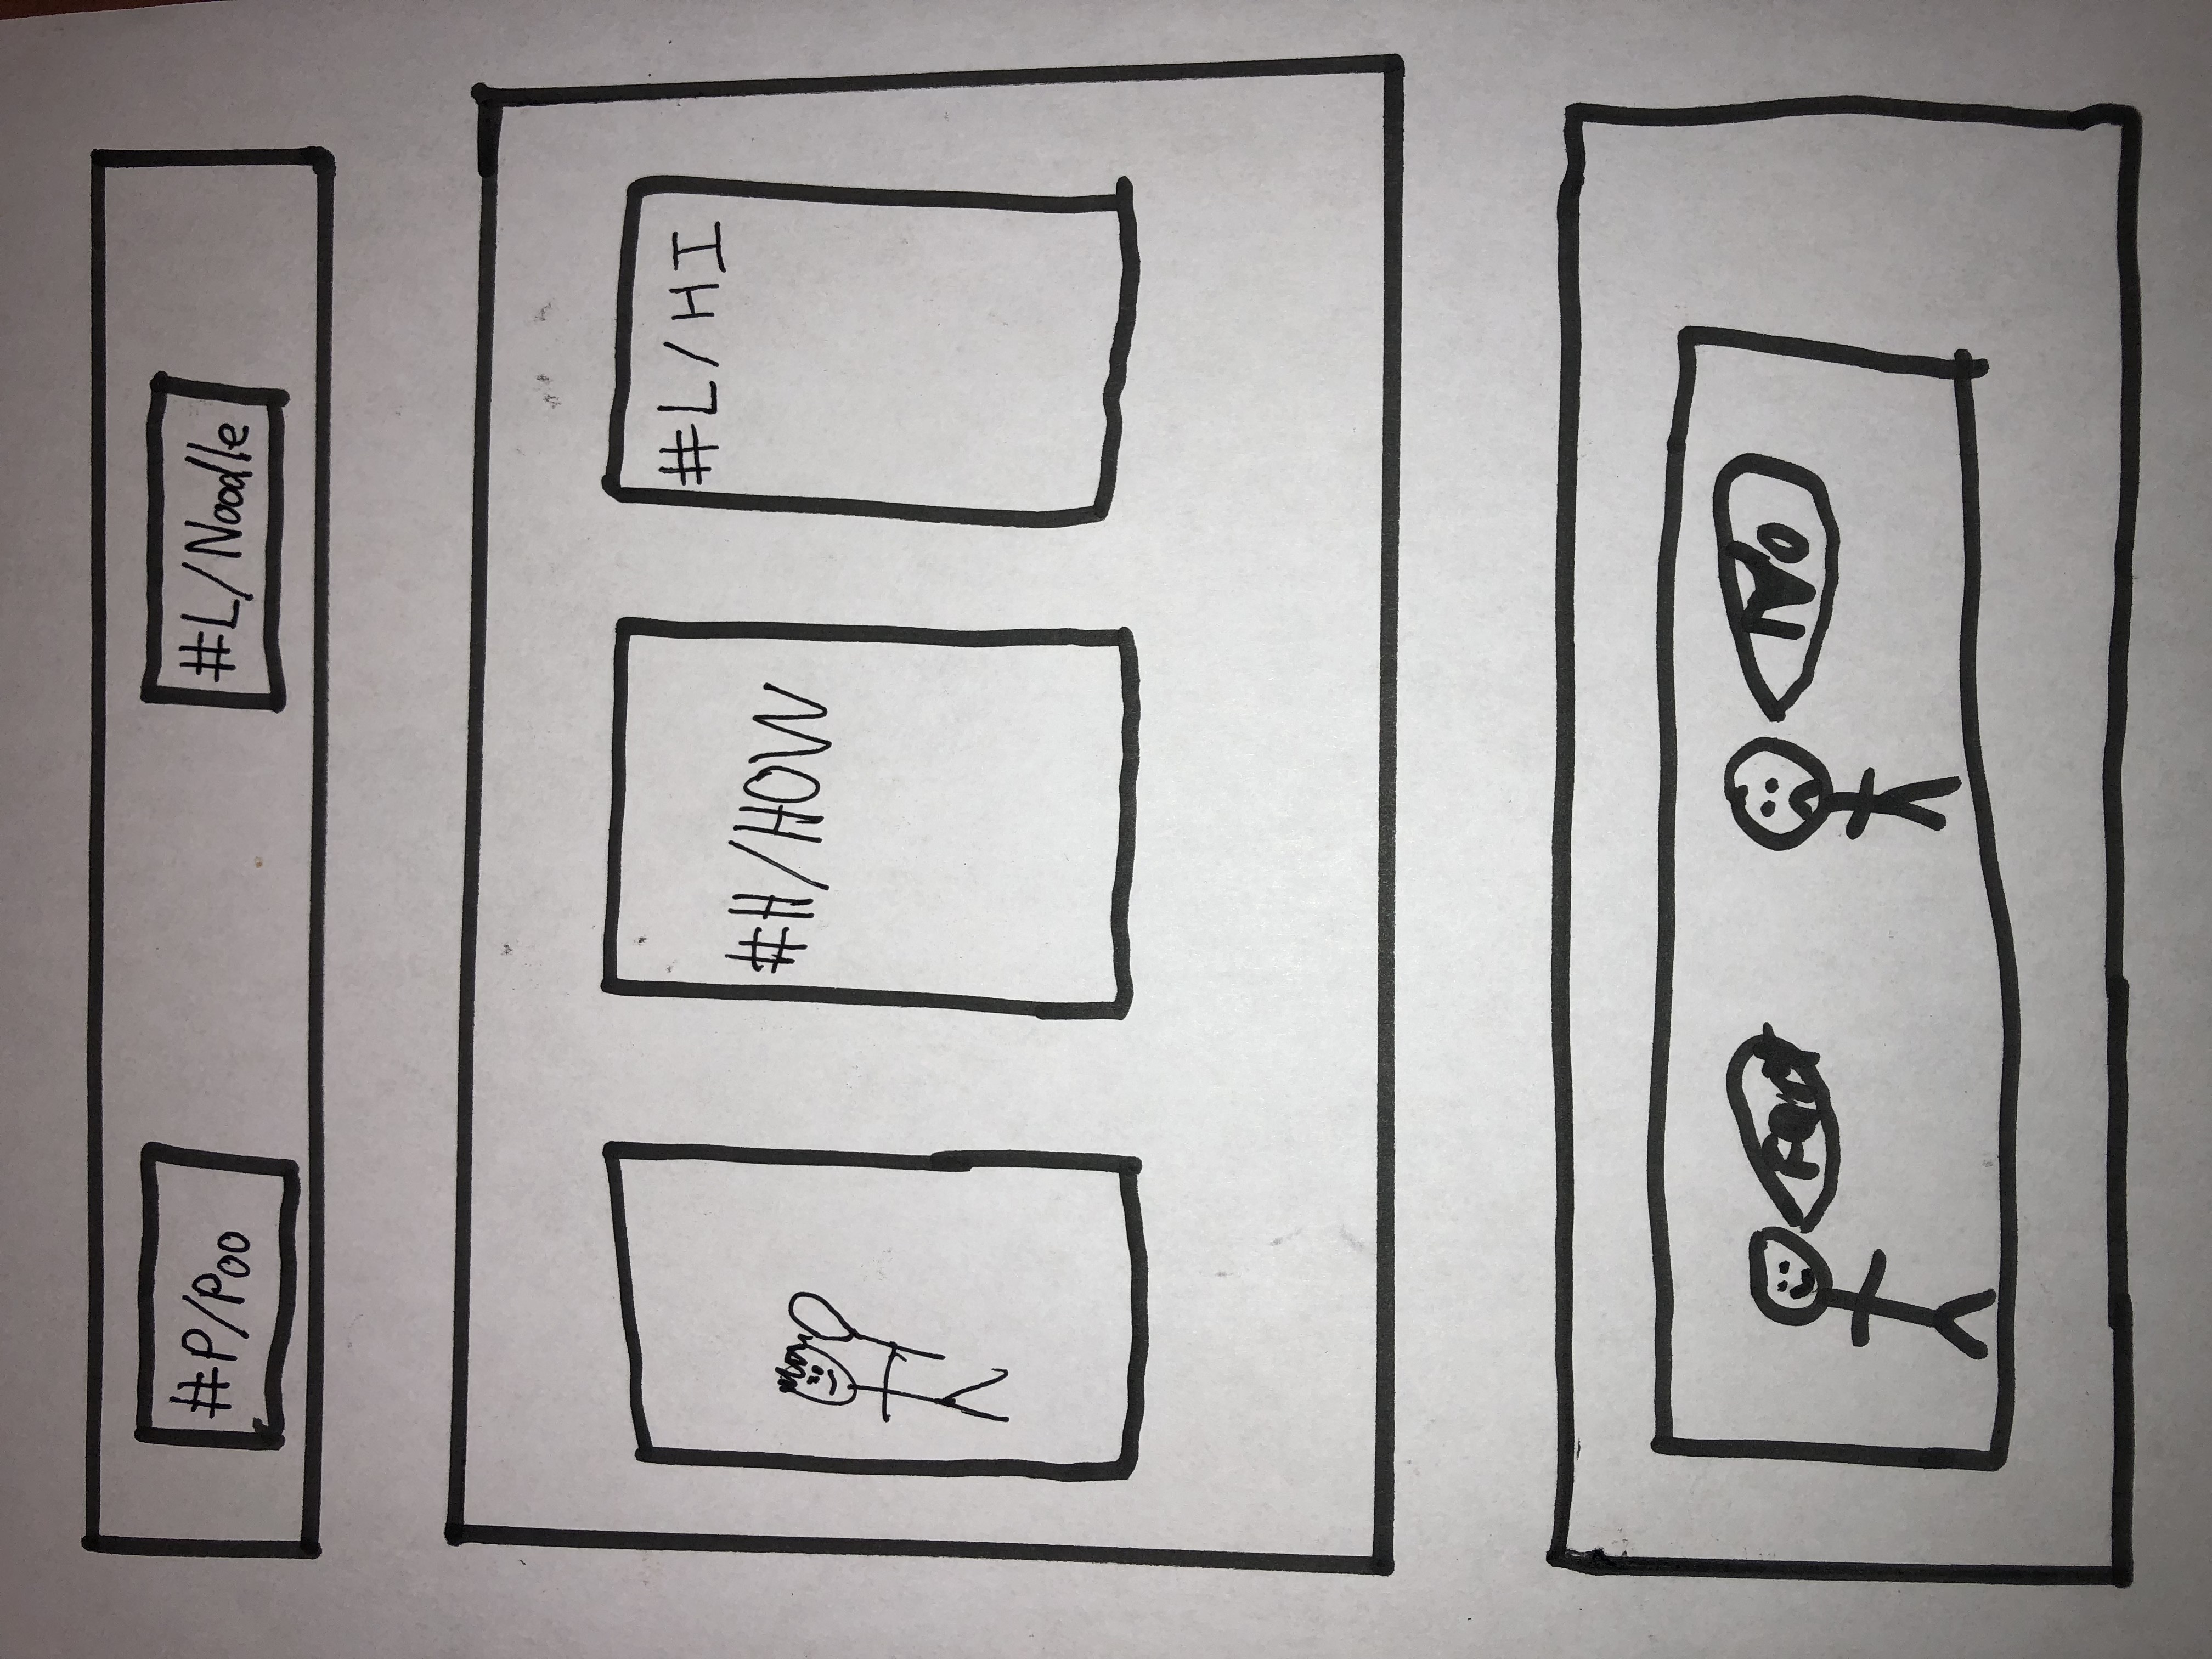 #P/Poo
#L/Noodle
#H/HOW
#L/HI
No